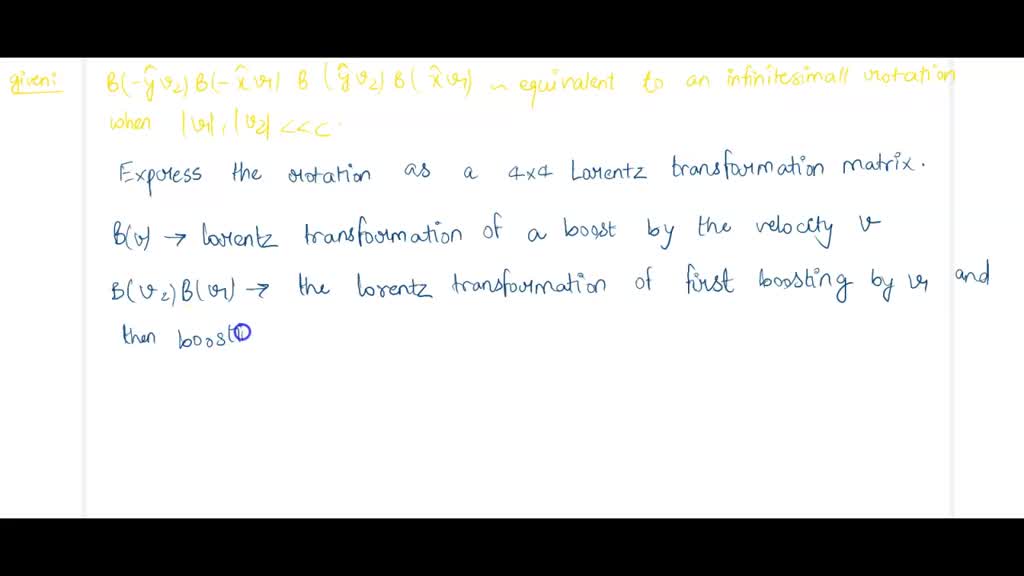 given: B(-ŷ v₂) B(-x̂ v₁) B (ŷ v₂) B( x̂ v₁) ~ equivalent to an infinitesimall rotation
when |v₁|, |v₂| <<c.
Express the rotation as a 4x4 Larentz transformation matrix.
B(v) → Lorentz transformation of a boost by the velocity v
B(v₂)B(v₁) → the lorentz transformation of first boosting by v₁ and
then boosti